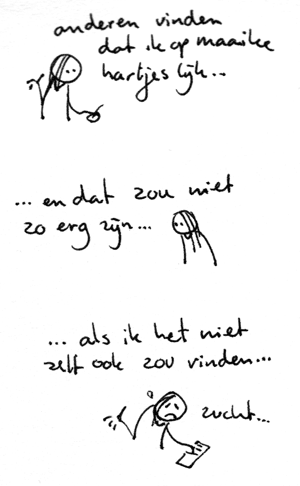 anderen vinden
dat ik op maaike
hartjes lijk...
... en dat zou niet
zo erg zijn...
... als ik het niet
zelf ook zou vinden...
zucht...